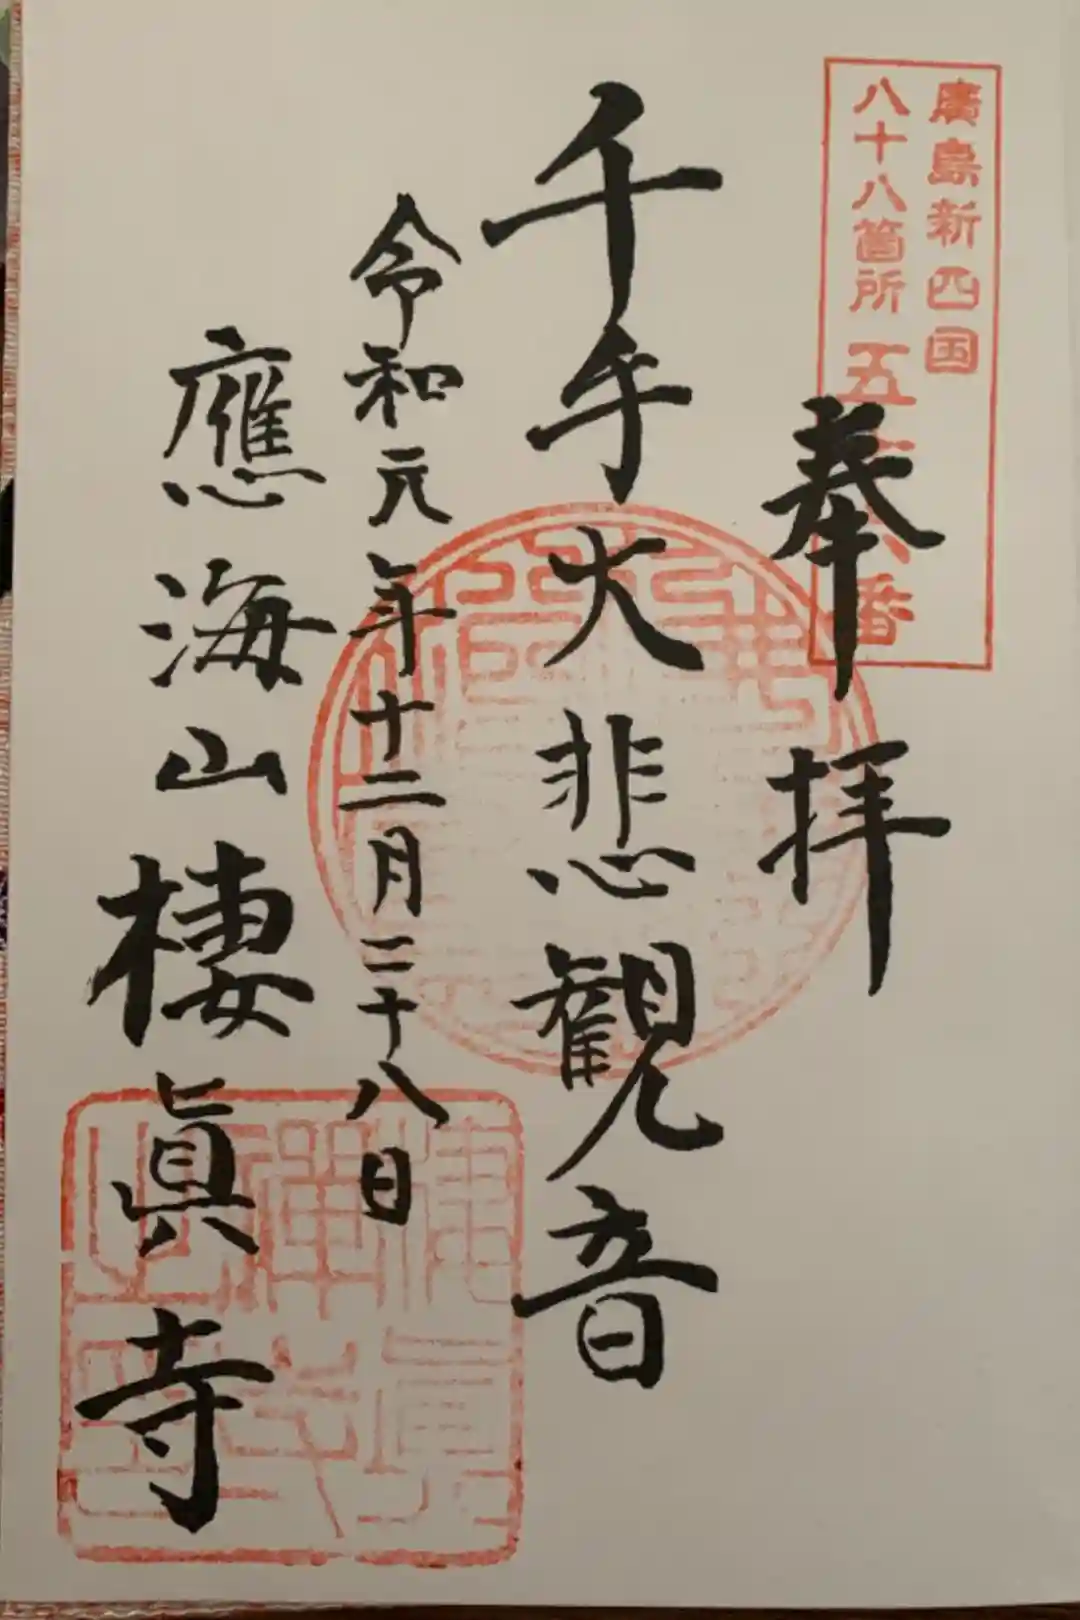 廣島新四国
八十八箇所 五十六番
奉拝
千手大悲観音
令和元年十二月二十八日
應海山棲眞寺
棲眞
禅寺